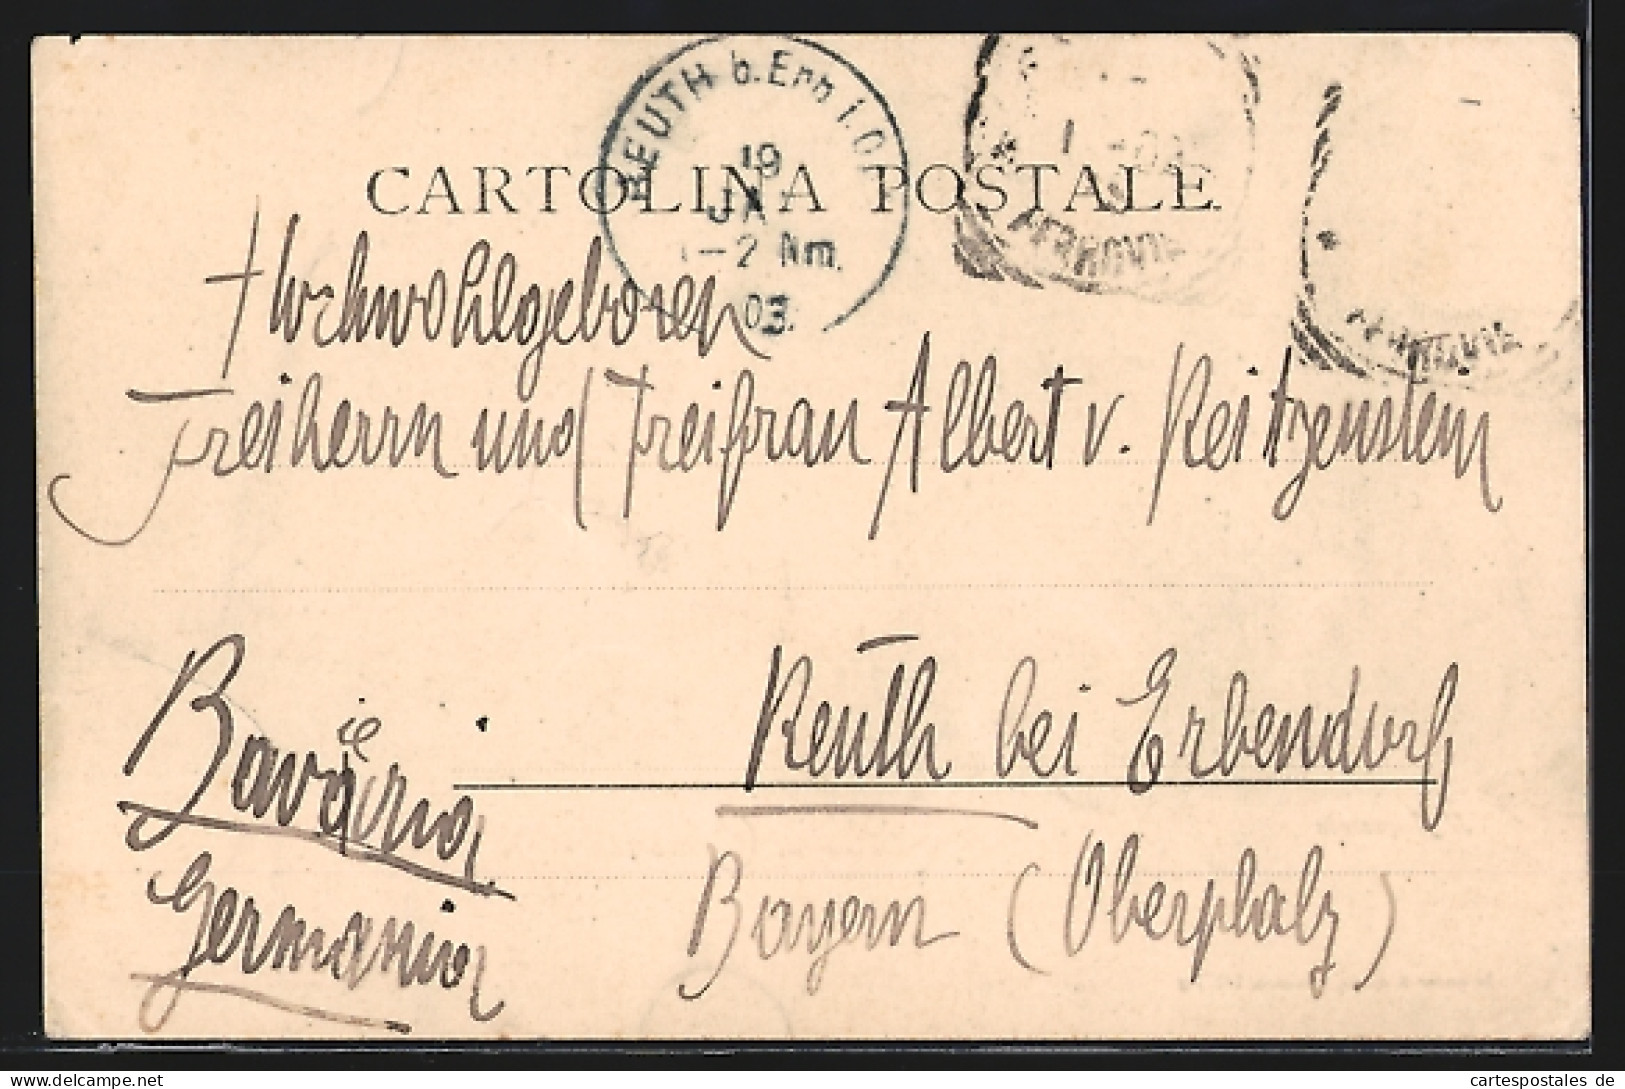 REUTH b. Erb i. O.
19
JA
1-2 Nm.
03.
FERROVIA
FERROVIA
CARTOLINA POSTALE.
Hochwohlgeboren
Freiherrn und Freifrau Albert v. Reitzenstein
Reuth bei Erbendorf
Bayern (Oberpfalz)
Bavieria
Germania
cartespostales de